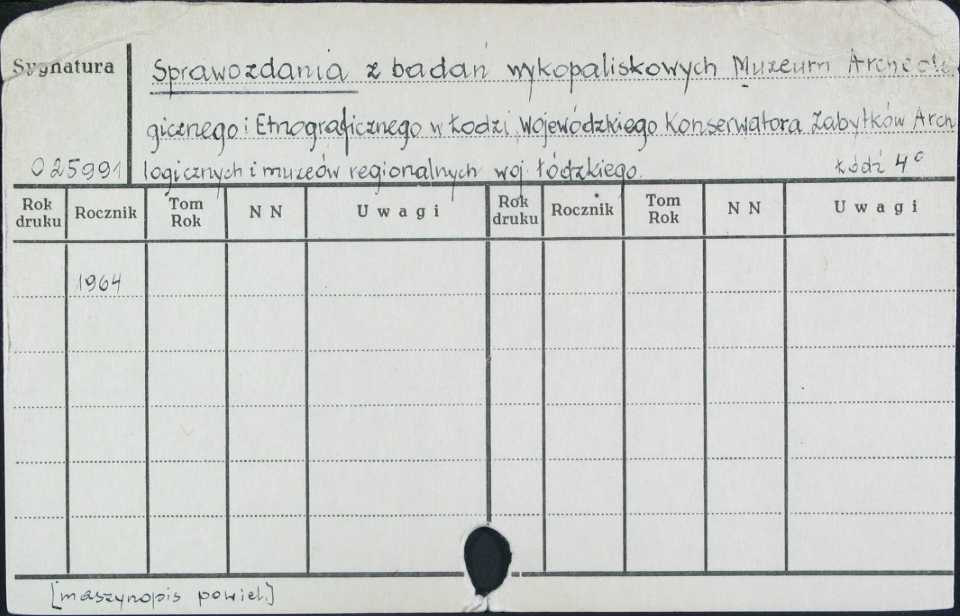 Sygnatura
Sprawozdania z badań wykopaliskowych Muzeum Archeolo
gicznego i Etnograficznego w Łodzi, Wojewódzkiego Konserwatora Zabytków Arch
025991 logicznych i muzeów regionalnych woj. łódzkiego. Łódź 4°
Rok druku Rocznik Tom Rok N N Uwagi Rok druku Rocznik Tom Rok N N Uwagi
1964
[maszynopis powiel.]